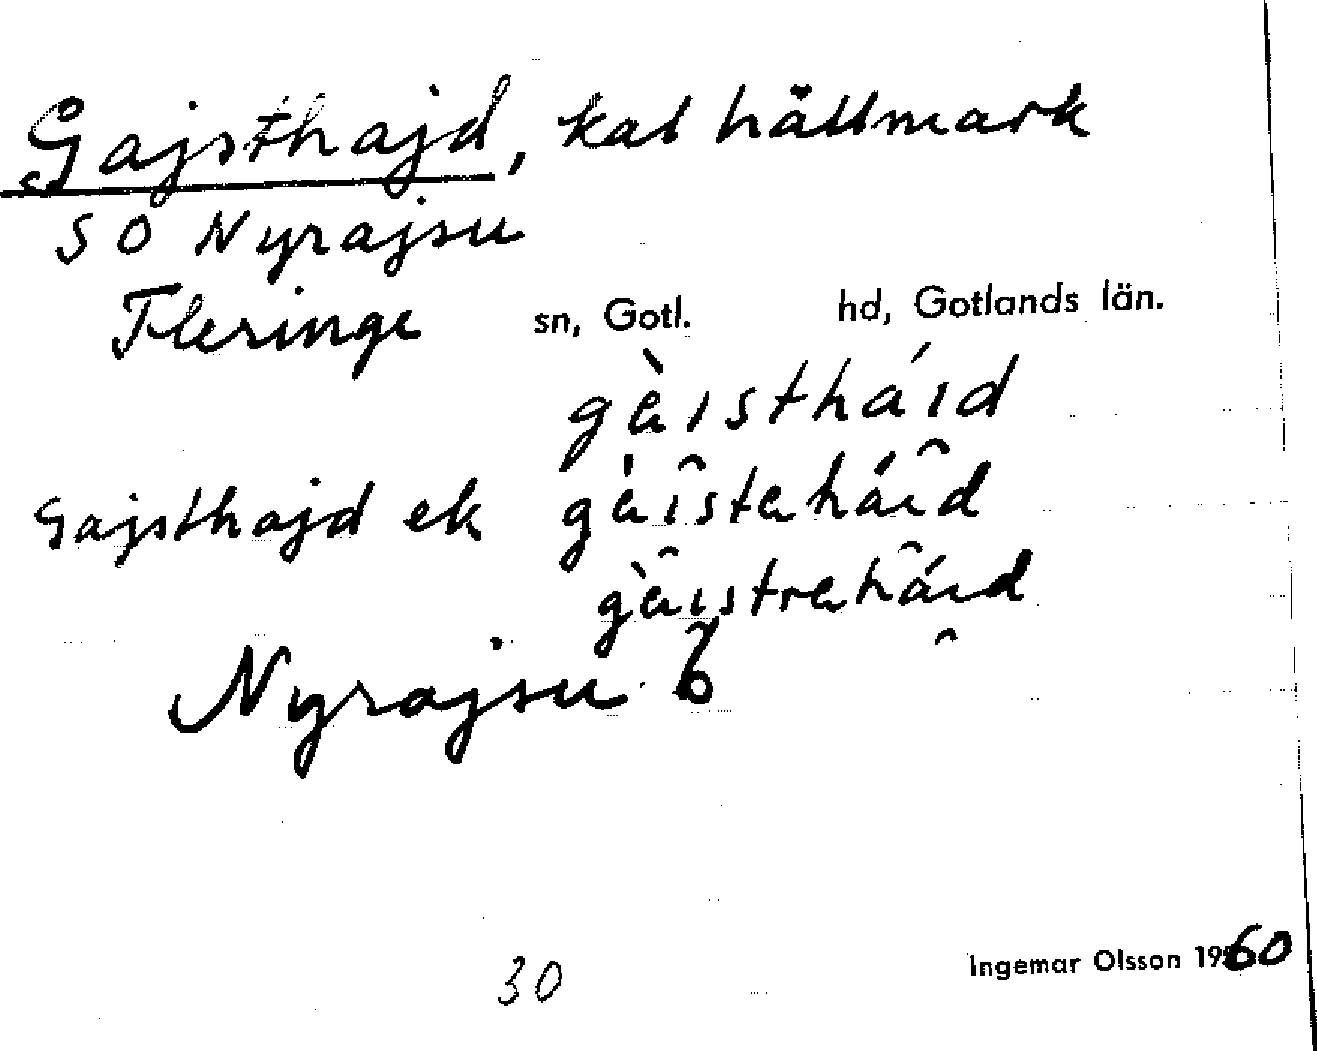 Gajsthajd, kal hällmark
SO Nyrajsu
Fleringe sn, Gotl. hd, Gotlands län.
gàıstháıd
Gajsthajd ek gàı̂staháı̂d
gàı̂straháı̂d
Nyrajsu 6
30 Ingemar Olsson 1960